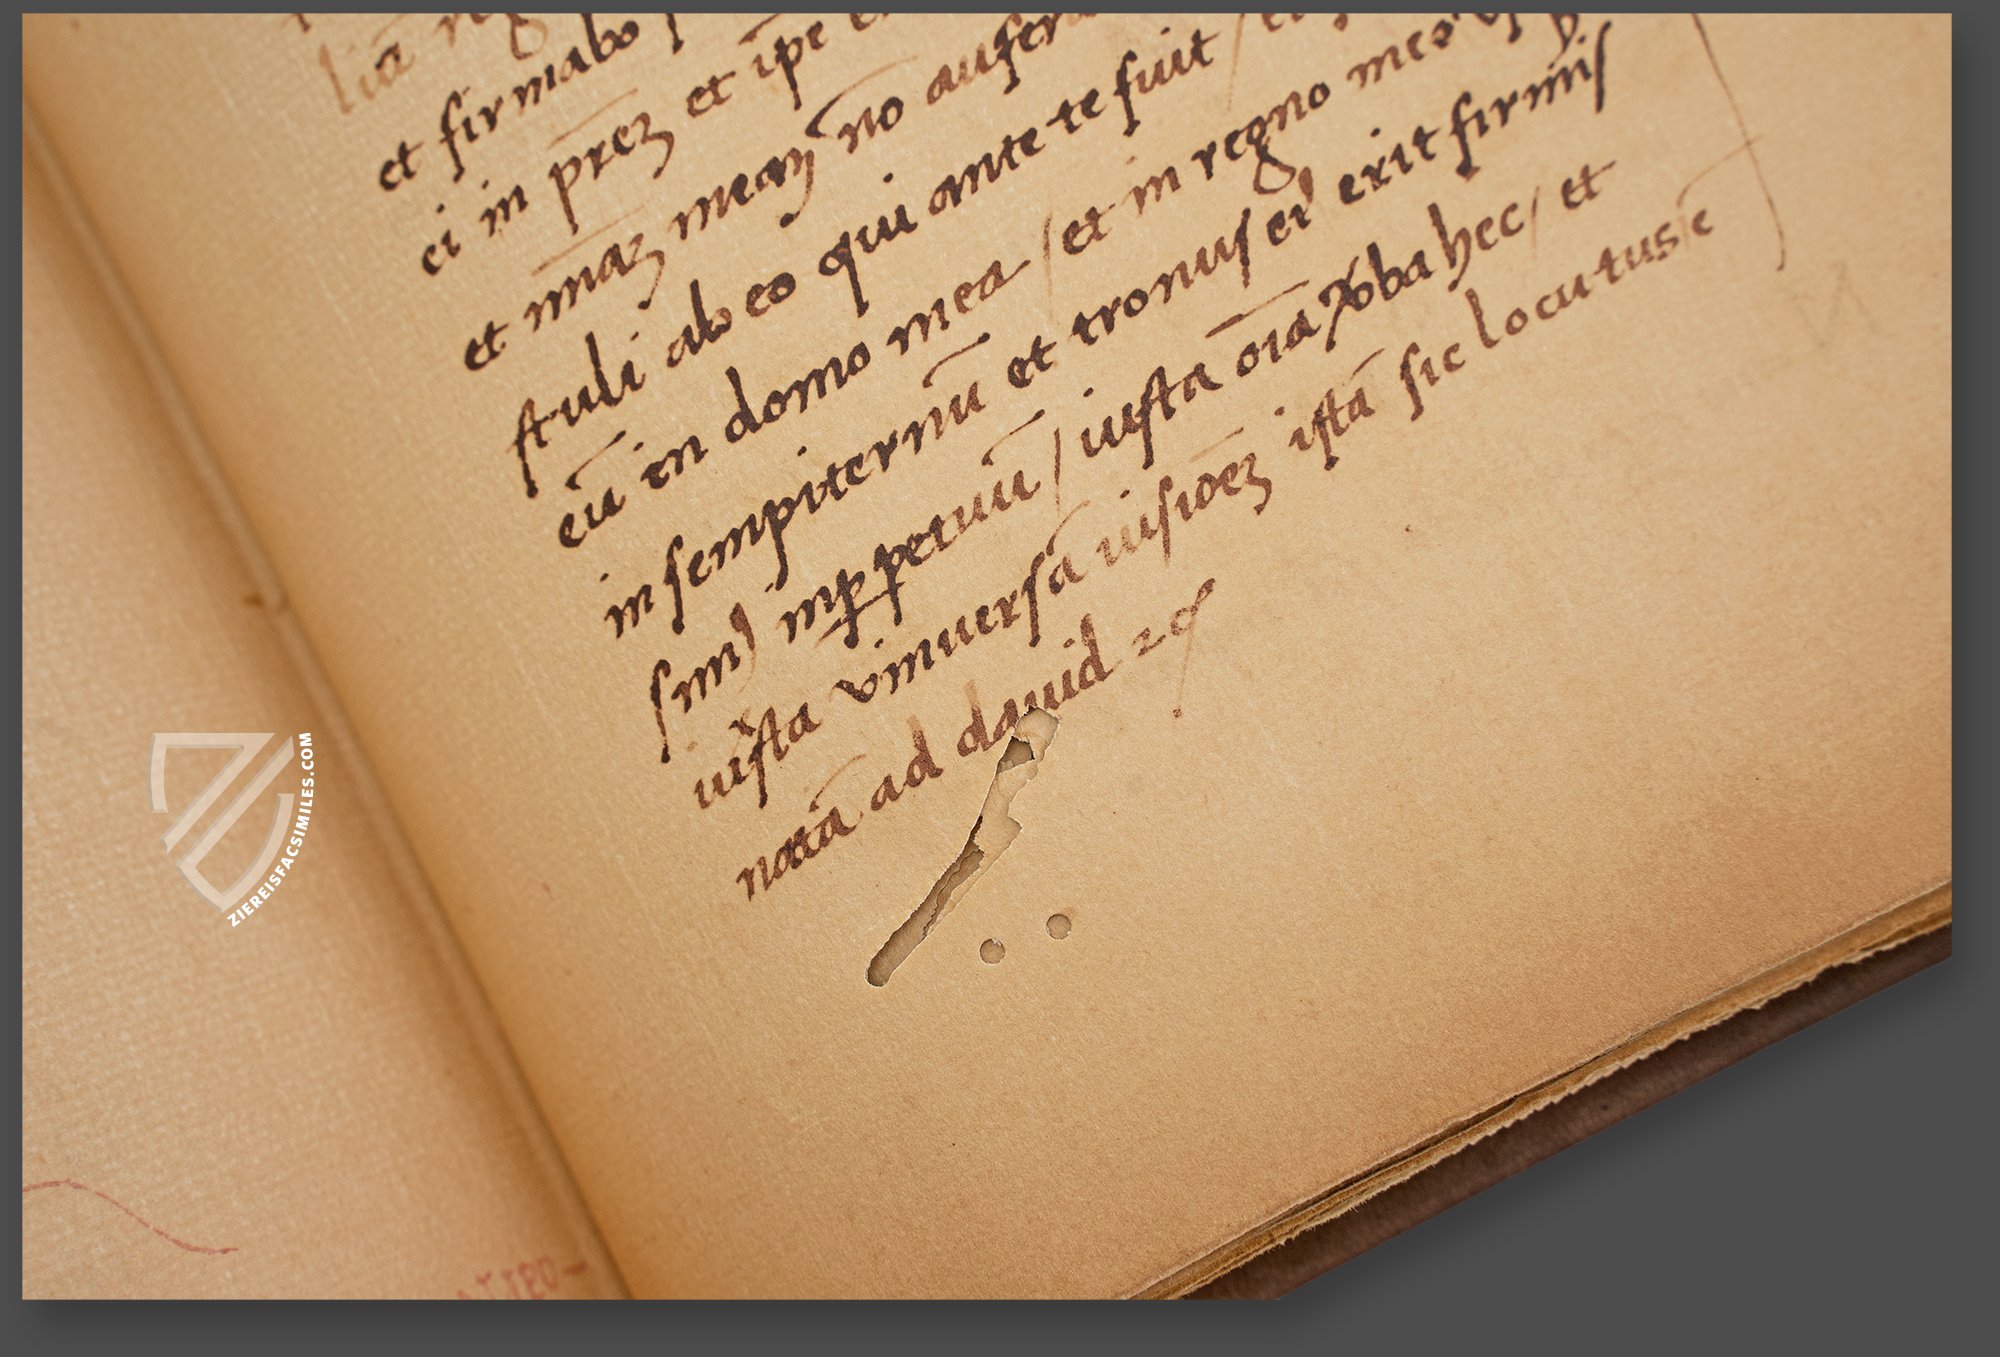 et firmabo
ei in prez et ipe
et miaz meaz no aufera
stuli ab eo qui ante te fuit /
eū in domo mea / et in regno meo
in sempiternū et tronus ei erit firmis
sim9 inppetuū / iuxta oīa vba hec / et
iuxta vniuersā uisioēz istā sic locutus ē
natā ad dauid
ZIEREISFACSIMILES.COM